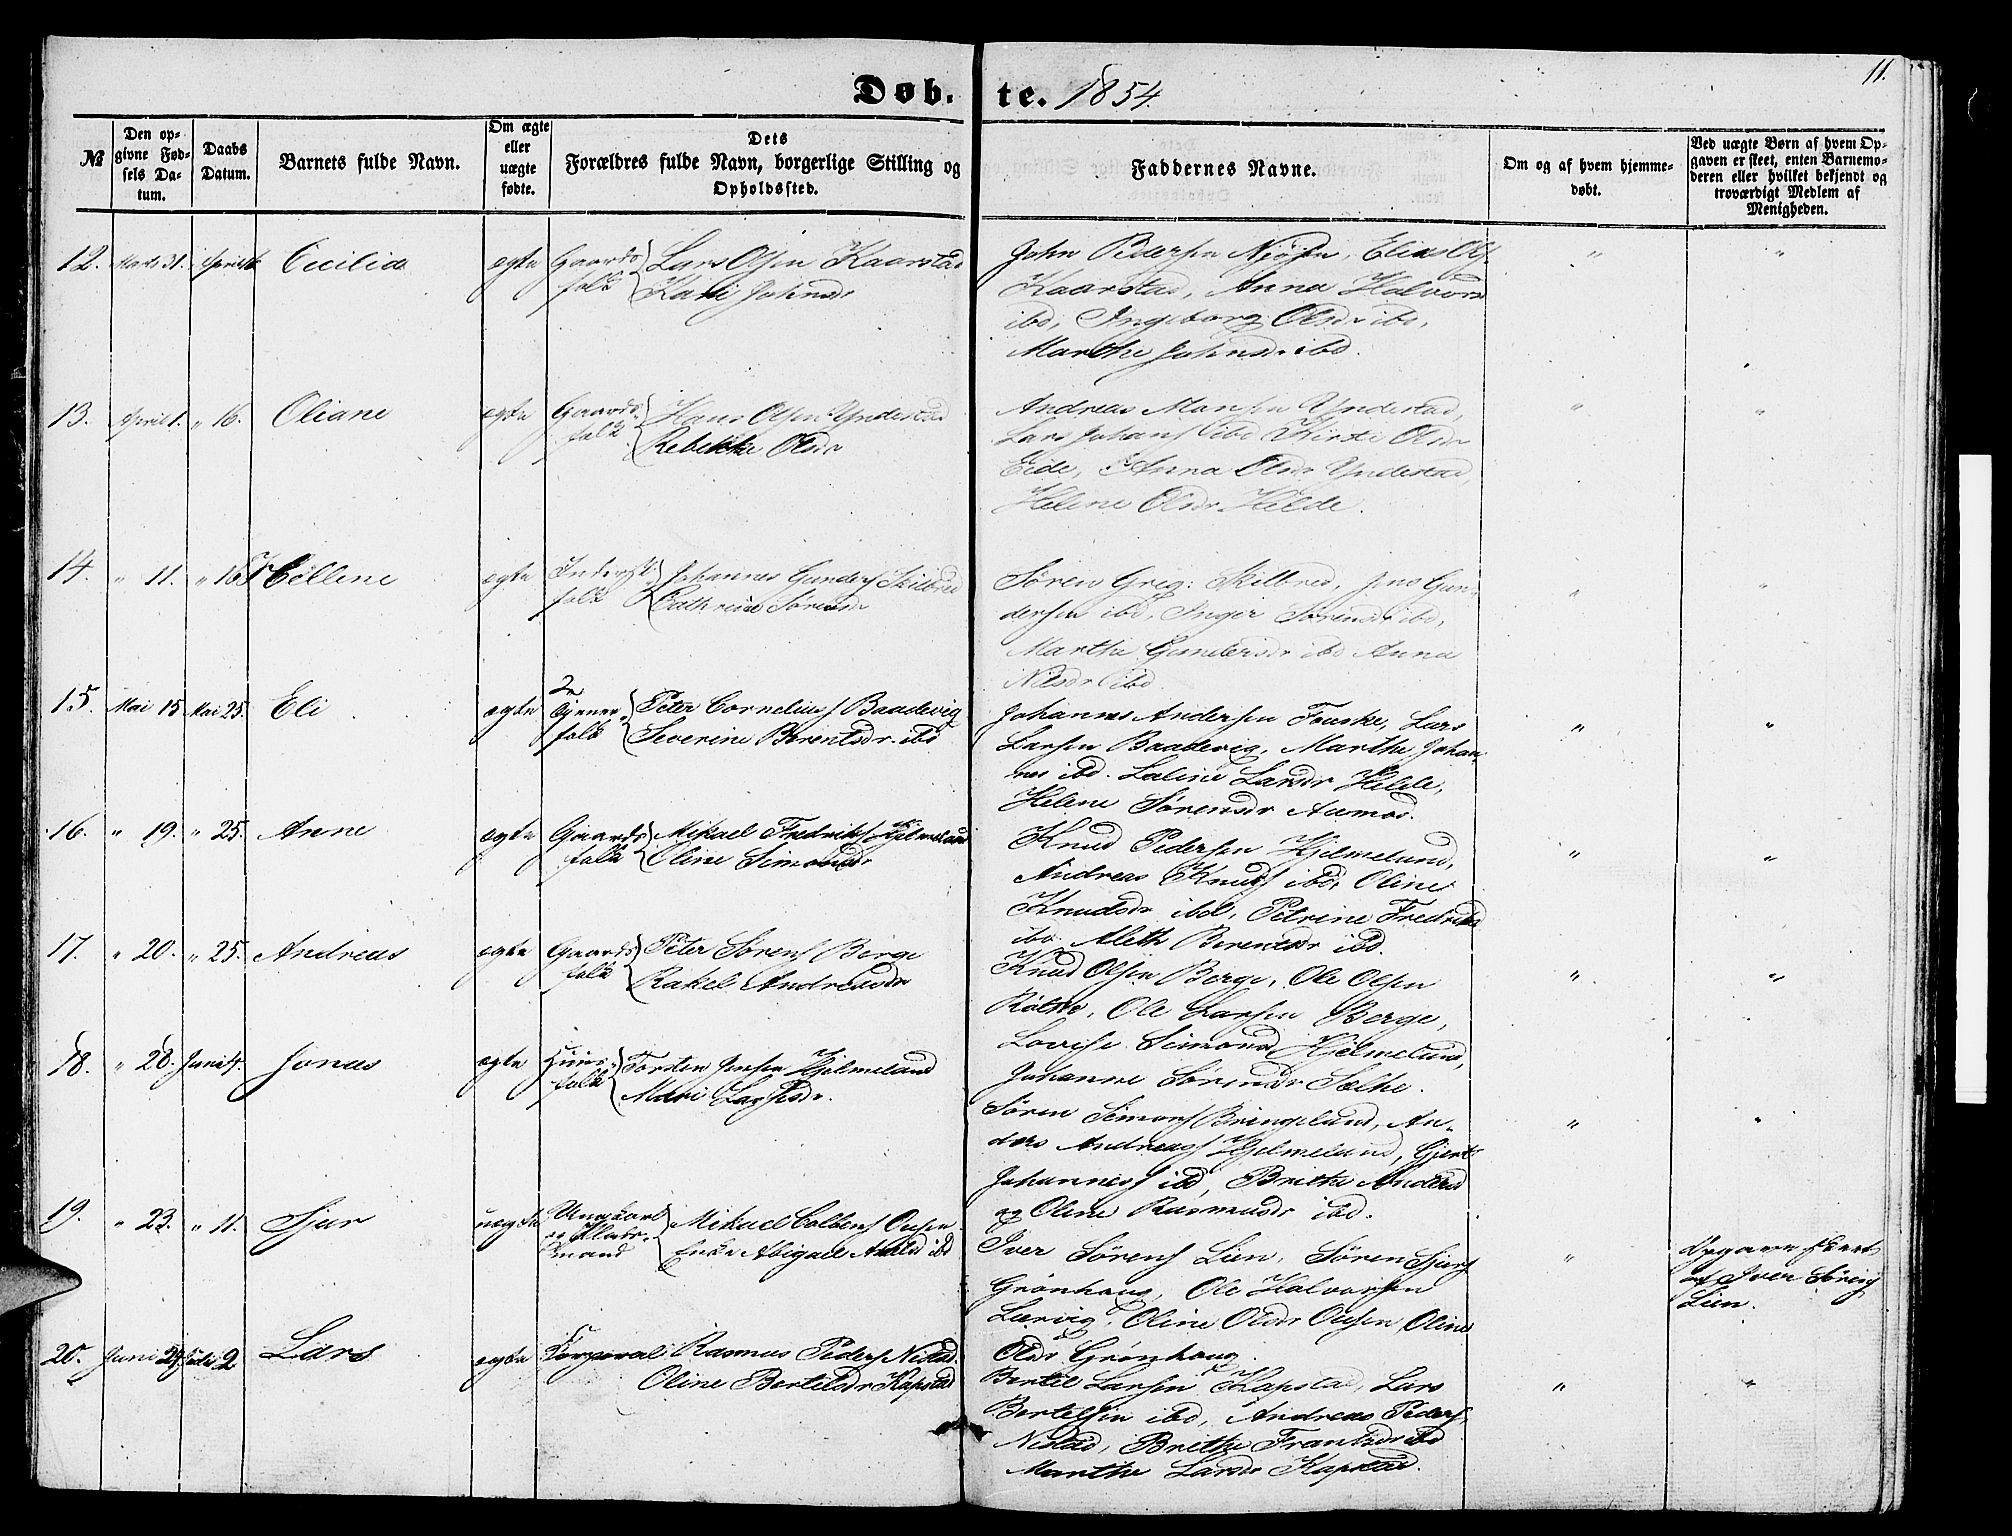 11.
Døbte. 1854.
№
Den opgivne Fødsels Datum.
Daabs Datum.
Barnets fulde Navn.
Om ægte eller uægte fødte.
Dets Forældres fulde Navn, borgerlige Stilling og Opholdssted.
Faddernes Navne.
Om og af hvem hjemmedøbt.
Ved uægte Børn af hvem Opgaven er skeet, enten Barnemoderen eller hvilket bekjendt og troværdigt Medlem af Menigheden.
12. Marts 31. April Cecilia ægte Gaards folk Lars Olsen Kaarstad
Kari Johnsdr
John Pedersen Njøsen, Elias Ols.
Kaarstad, Anna Halvors
ibd, Ingeborg Olsdr ibd,
Marthe Johnsdr ibd.
13. April 1. " 16. Oliane ægte Gaards folk Hans Olsen Yndestad
Rebekke Olsdr
Andreas Monsen Yndestad,
Lars Johans ibd Kirsti Olsdr
Eide, Anna Olsdr Yndestad,
Helene Olsdr Hilde.
14. " 11. " 16. Cellene ægte Inderst folk Johannes Gunders Skilbred
Cathrine Sørensdr
Søren Greg: Skilbred, Jens Gun-
dersen ibd, Inger Sørensdr ibd,
Marthe Gundersdr ibd Anna
Nilsdr ibd
15. Mai 15 Mai 25. Eli ægte Tjenerfolk Peter Cornelius Baadevig
Severine Berentsdr. ibd
Johannes Andersen Fauske, Lars
Larsen Baadevig, Marthe Johan-
nes ibd. Laline Larsdr Hilde,
Helene Sørensdr Aamot.
16. " 19. " 25. Anne ægte Gaards folk Mikael Fredriks Hjelmeland
Oline Simonsdr
Knud Pedersen Hjelmeland,
Andreas Knuds ibd, Oline
Knudsdr ibd, Petrine Fredriks
ibd. Aleth Berentsdr ibd.
17. " 20. " 25. Andreas ægte Gaards folk Peter Sørens Berge
Rakel Andreasdr
Knud Olsen Berge, Ole Olsen
Ole Larsen Berge,
Lovise Simonsdr Hjelmeland,
Johanne Sørensdr Sælthe.
18. " 28. Juni 4. Jonas ægte Huus folk Torsten Jensen Hjelmeland
Mari
Søren Simons Bringeland, An-
ders Andreas Hjelmeland, Gjert
Johannes ibd, Brithe Anders
og Oline Rasmusdr ibd.
19. " 23. " 11. Sjur uægte Ungkarl og Enkemand Mikael Colbens Ousen
Enke Abigael Anders ibd
Iver Sørens Lien, Søren Sjurs
Grønhaug, Ole Halvorsen
Lærvig, Oline Olsdr Ousen, Oline
Olsdr Grønhaug.
Opgaven skeet
af Iver Sørens
Lien.
20. Juni 24 Juli 2 Lars ægte Korporal Rasmus Peders Nistad.
Oline Bertelsdr Kapstad
Bertil Larsen Kapstad, Lars
Bertelsen ibd, Andreas Peders
Nistad, Brithe Frantsdr ibd
Marthe Larsdr Kapstad.